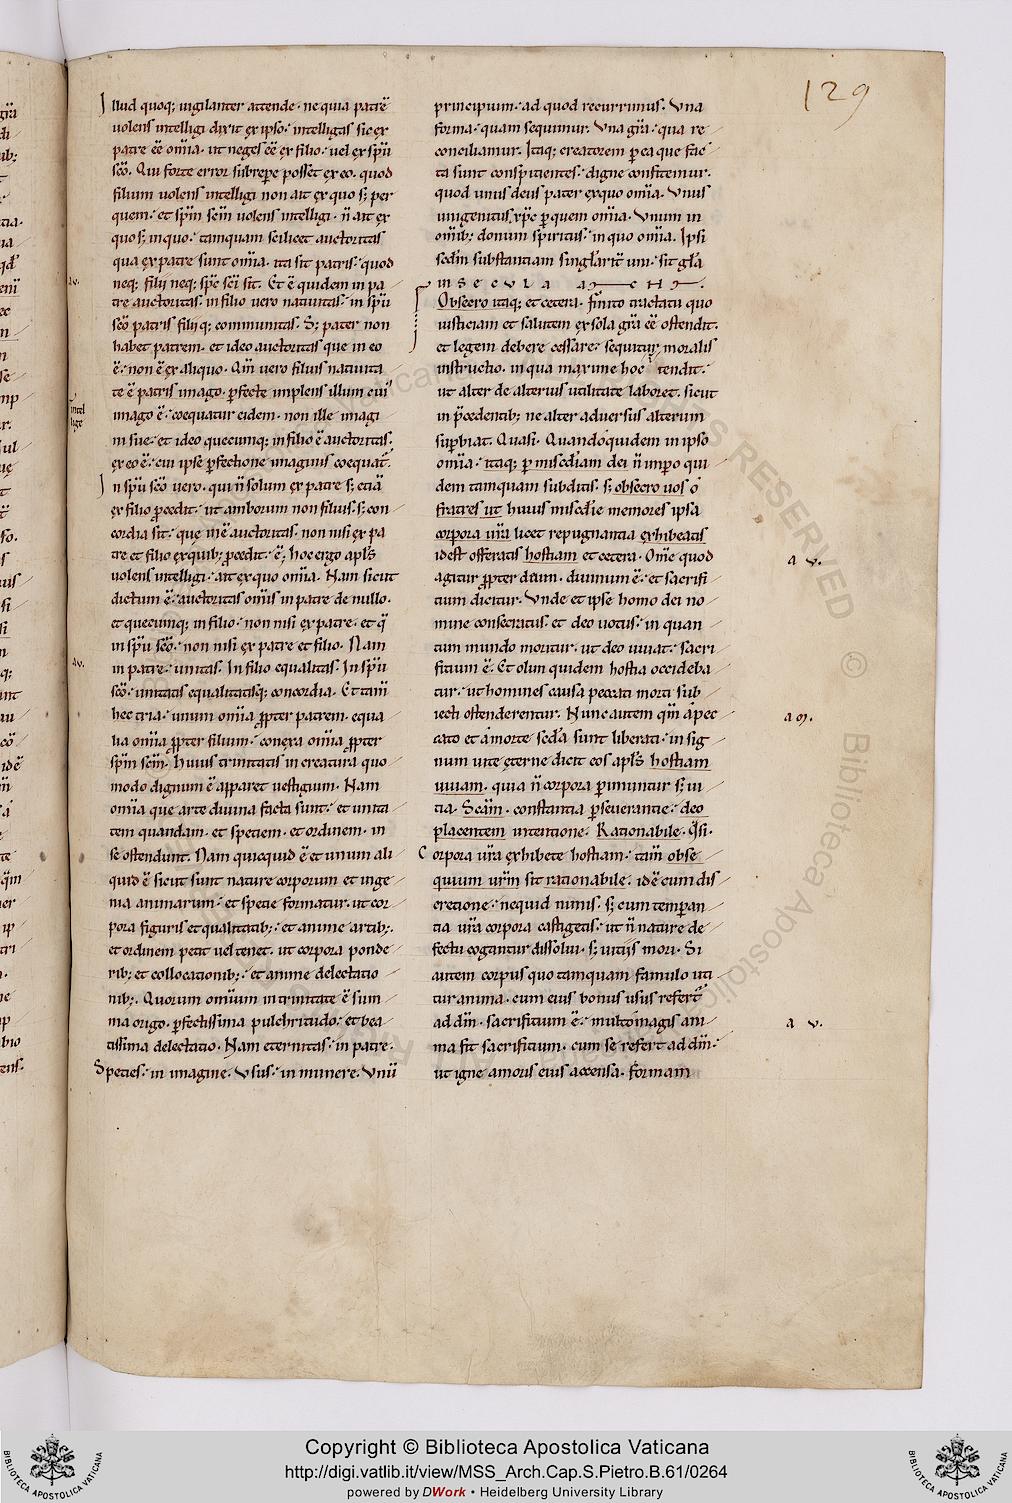 129
Illud quoq; uigilanter attende · ne quia patrē
uolens intelligi dixit ex ipso · intelligas sic ex
patre eē om̄ia · ut neges eē ex filio · uel ex sp̄u
sc̄o. Qui forte error subrepe posset ex eo · quod
filium uolens intelligi non ait ex quo s; per
quem · et sp̄m sc̄m uolens intelligi · n̄ ait ex
quo s; in quo · tamquam scilicet auctoritas
qua ex patre sunt om̄ia · ita sit patris · quod
neq; filij neq; sp̄c sc̄i sit. Et ē quidem in pa
tre auctoritas · in filio uero natiuitas · in sp̄u
sc̄o patris filijq; communitas. S; pater non
habet patrem · et ideo auctoritas que in eo
ē · non ē ex aliquo. Qm̄ uero filius natiuita
te ē patris imago · p̄fecte implens illum cui'
imago ē · coequatur eidem · non ille imagi
ni sue · et ideo quecumq; in filio ē auctoritas ·
ex eo ē · cui ipse p̄fectione imaginis coequat̄.
In sp̄u sc̄o uero · qui n̄ solum ex patre s; etiā
ex filio p̄cedit · ut amborum non filius · s; con
cordia sit · que in ē auctoritas · non nisi ex pa
tre et filio ex quib; p̄cedit · ē; hoc ergo apl's
uolens intelligi · ait ex quo om̄ia. Nam sicut
dictum ē · auctoritas om̄is in patre de nullo ·
et quecumq; in filio · non nisi ex patre · et q̄
in sp̄u sc̄o · non nisi ex patre et filio. Nam
in patre · unitas. In filio equalitas. In sp̄u
sc̄o · unitatis equalitatisq; concordia. Et tam̄
hec tria · unum om̄ia p̄pter patrem · equa
lia om̄ia p̄pter filium · conexa om̄ia p̄pter
sp̄m sc̄m. Huius trinitatis in creatura quo
modo dignum ē apparet uestigium. Nam
om̄ia que arte diuina facta sunt · et unita
tem quandam · et speciem · et ordinem · in
se ostendunt. Nam quicquid ē et unum ali
quid ē sicut sunt nature corporum et inge
nia animarum · et specie formatur · ut cor
pora figuris et qualitatib; · et anime artib; ·
et ordinem petit uel tenet · ut corpora ponde
rib; et collocationib; · et anime delectatio
nib;. Quorum omium in trinitate ē sum
ma origo · p̄fectissima pulchritudo · et bea
tissima delectatio. Nam eternitas · in patre ·
Species · in imagine. Usus · in munere. Unū
principium · ad quod recurrimus. Una
forma · quam sequimur. Una grā · qua re
conciliamur. Itaq; creatorem p̄ ea que fac̄
ta sunt conspicientes · digne confitemur ·
quod unus deus pater ex quo om̄ia. Unus
unigenitus xp̄c p̄ quem om̄ia. Unum in
om̄ib; donum spiritus · in quo om̄ia. Ipsi
sc̄dm substantiam singlarit̄ uni · sit gl̄a
in secula
Obsecro itaq; et cetera. finito tractatu quo
iusticiam et salutem ex sola grā eē ostendit ·
et legem debere cessare · sequitur moralis
instructio · in qua maxime hoc tendit ·
ut alter de alterius utilitate laboret · sicut
in p̄cedentib; ne alter aduersus alterum
sup̄biat. Quasi. Quandoquidem in ipso
om̄ia · itaq; p̄ misc̄diam dei n̄ impo qui
dem tamquam subditis · s; obsecro uos o
fratres ut huius misc̄die memores ipsa
corpora ur̄a licet repugnantia exhibeatis
idest offeratis hostiam et cetera. Om̄e quod
agitur p̄pter deum · diuinum ē · et sacrifi
cium dicitur. Unde et ipse homo dei no
mine consecratus · et deo uotus · in quan
tum mundo moritur · ut deo uiuat · sacri
ficium ē. Et olim quidem hostia occideba
tur · ut homines causa peccati morti sub
iecti ostenderentur. Nunc autem qm̄ a pec
cato et a morte sc̄da sunt liberati · in sig
num uite eterne dicit eos apl's hostiam
uiuam · quia n̄ corpora p̄imuntur s; ui
tia. Sc̄am · constantia p̄seuerantie · deo
placentem intentione. Rationabile. Q̄si.
Corpora ur̄a exhibete hostiam · tam̄ obse
quium ur̄m sit rationabile · id ē cum dis
cretione · nequid nimis · s; cum temp̄an
tia ur̄a corpora castigetis · ut n̄ nature de
fectu cogantur dissolui · s; uitijs mori. Si
autem corpus quo tamquam famulo uti
tur anima · cum eius bonus usus refert̄
ad dm̄ · sacrificium ē · multo magis ani
ma fit sacrificium · cum se refert ad dm̄ ·
ut igne amoris eius accensa · formam